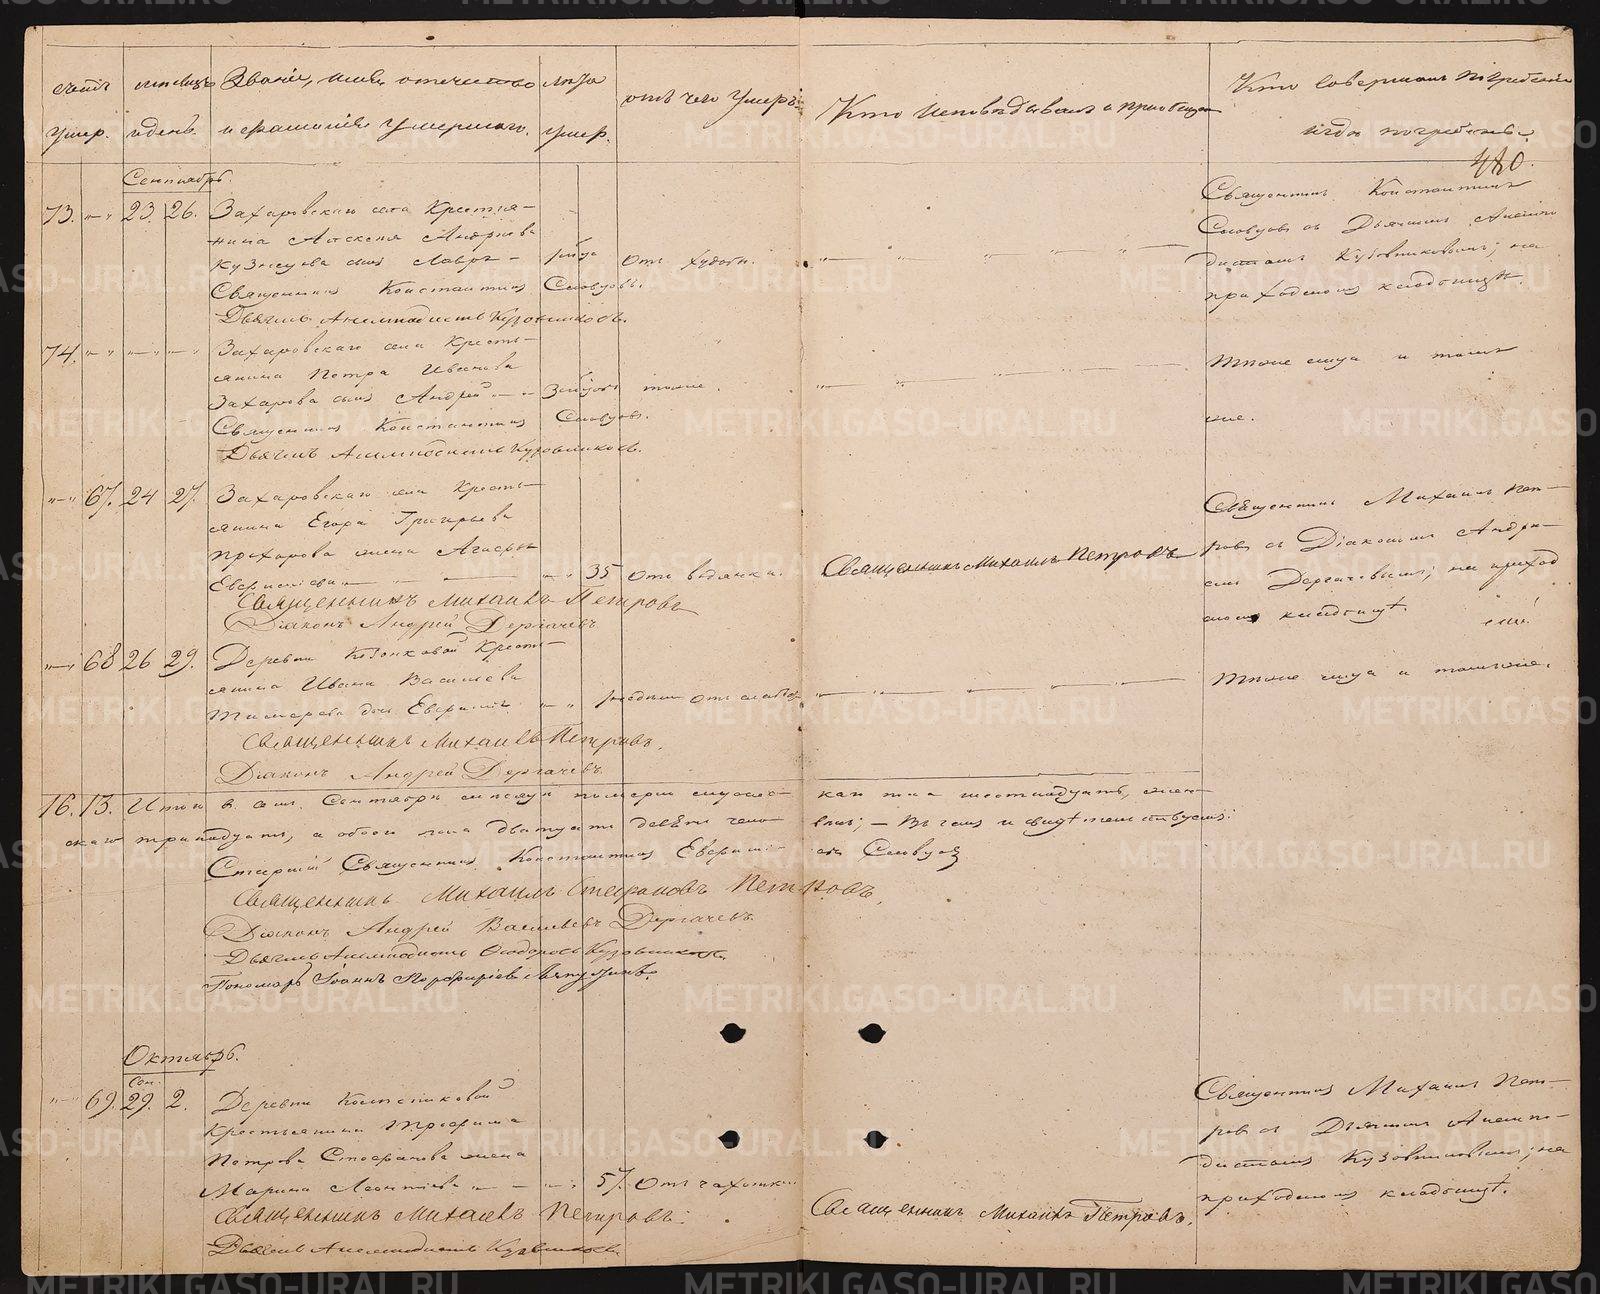 Счетъ умер. мѣсяцъ и день. Званіе, имя, отчество и фамилія умершаго. лѣта умер. отъ чего умеръ.
Кто исповѣдывалъ и пріобщал
Кто совершалъ погребеніе и гдѣ погребены.
480.
Сентябрь.
73. 23. 26. Захаровскаго села Крестья-
нина Алексѣя Андреева
Кузнецова сынъ
Священникъ Константинъ Словцовъ.
Дьячекъ Анемподистъ Кузовниковъ.
Священникъ Константинъ
Словцовъ съ Дьячкомъ Анемпо
дистомъ Кузовниковымъ; на
приходскомъ кладбищѣ.
74. Захаровскаго села Кресть-
янина Петра Иванова
Захарова сынъ Андрей тоже.
Священникъ Константинъ Словцовъ.
Дьячекъ Анемподистъ Кузовниковъ.
Тѣже лица и тамъ
же.
67. 24 27. Захаровскаго села Кресть-
янина Егора Григорьева
жена
35 отъ водянки.
Священникъ Михаилъ Петровъ
Діаконъ Андрей Дергачевъ
Священникъ Михаилъ Петровъ
Священникъ Михаилъ Пет-
ровъ съ Діакономъ Андре-
емъ Дергачевымъ; на приход
скомъ кладбищѣ.
68 26 29. Деревни Кресть-
янина Ивана Васильева
дочь
Священникъ Михаилъ Петровъ.
Діаконъ Андрей Дергачевъ
Тѣже лица и тамъже.
16. 13. Итого въ Сентябрѣ мѣсяцѣ померло мужес-
каго пола шестнадцать, жен-
скаго тринадцать, а обоего пола двадцать девять чело-
вѣкъ; — Въ чемъ и свидѣтельствуемъ:
Старшій Священникъ Константинъ Словцовъ
Священникъ Михаилъ Стефановъ Петровъ.
Діаконъ Андрей Васильевъ Дергачевъ
Дьячекъ Анемподистъ Ѳеодоровъ Кузовниковъ
Пономарь Іоаннъ Порфирьевъ
Октябрь.
Сен.
69. 29. 2. Деревни
Крестьянина Трофима
Петрова Стефанова жена
Марина Леонтьева 57. Отъ чахотки
Священникъ Михаилъ Петровъ.
Дьячекъ Анемподистъ Кузовниковъ
Священникъ Михаилъ Петровъ.
Священникъ Михаилъ Пет-
ровъ съ Дьячкомъ Анемпо-
дистомъ Кузовниковымъ; на
приходскомъ кладбищѣ.
METRIKI.GASO-URAL.RU